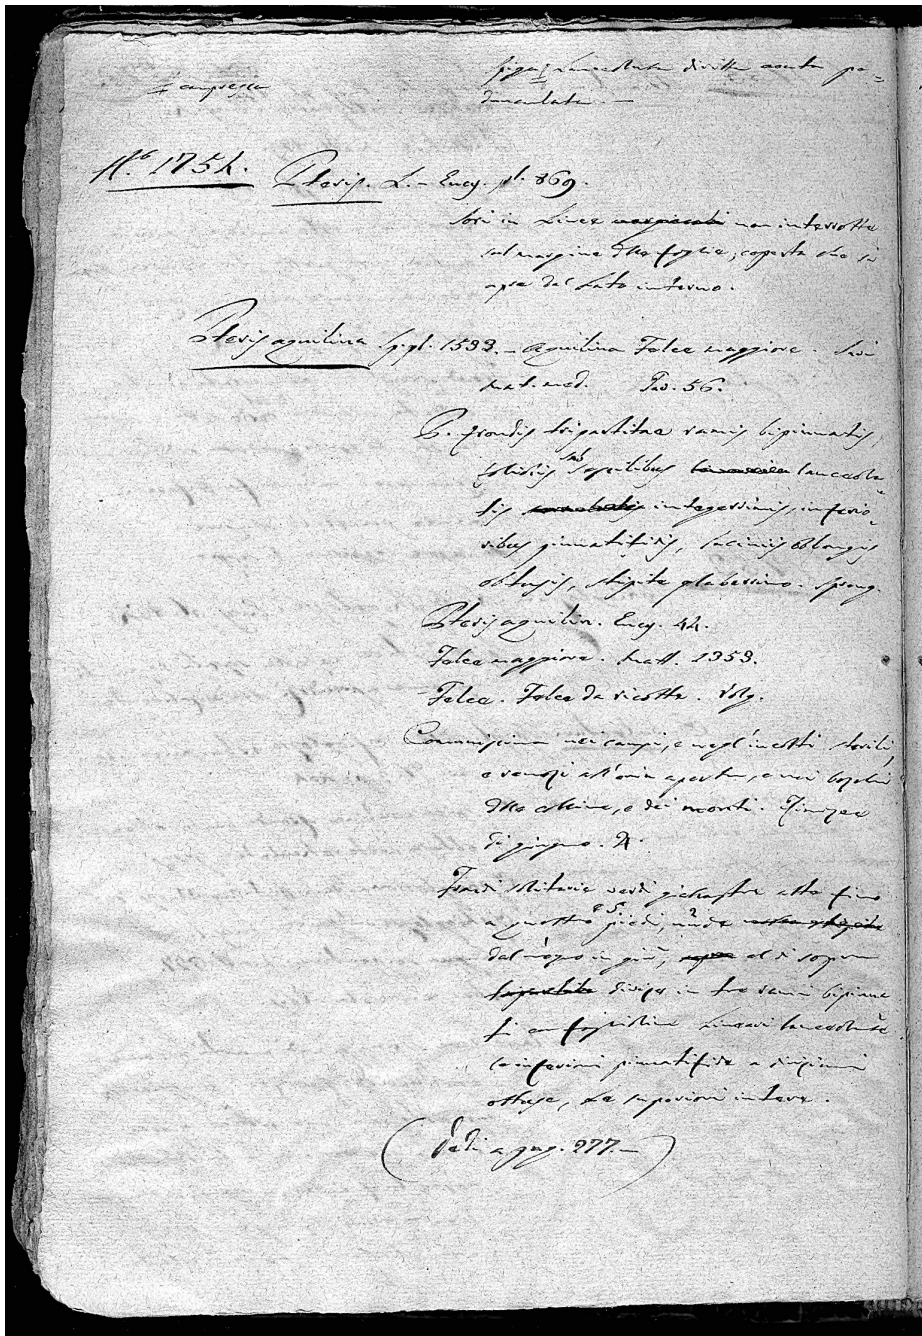 compressa
spiga lanceolata diritta acuta pe-
duncolata. —
N.º 1754. Pteris. L. – Ency. pl. 869.
Sori in linea non interrotta
sul margine delle foglie; coperta che si
apre dal lato interno.
Pteris aquilina Sp. pl. 1533. – Aquilina Felce maggiore. Savi
mat. med. Tav. 56.
P. frondis tripartitae ramis bipinnatis,
foliolis sub sessilibus lanceola-
tis integerrimis, inferio-
ribus pinnatifidis, laciniis oblongis
obtusis, stipite glaberrimo. Spreng.
Pteris aquilin. Ency. 44.
Felce maggiore. Matt. 1353.
Felce. Felce da ricotte. Volg.
Comunissima nei campi, e negl'incolti sterili,
e renosi all'aria aperta, e nei
delle colline, e dei monti.
di giugno. ♃.
Frondi solitarie verdi alte fino
a quattro e 5 piedi, nude
dal mezzo in giù, e al di sopra
divise in tre rami bipinna
ti con foglioline lineari lanceolate
le inferiori pinnatifide a
ottuse, le superiori intere.
(Vedi a pag. 277. —)